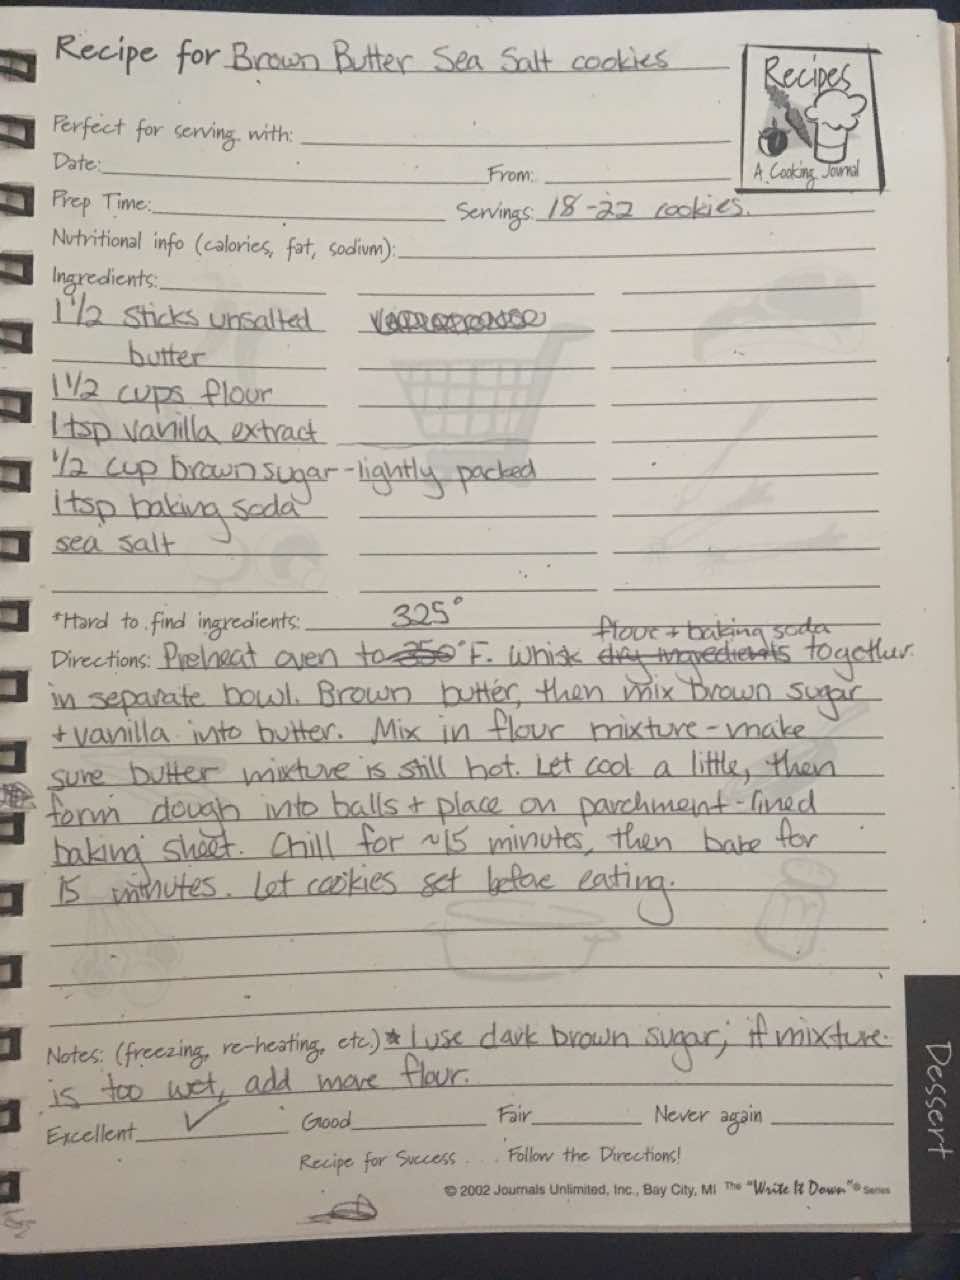 Recipe for Brown Butter Sea Salt cookies
Recipes
A Cooking Journal
Perfect for serving with:
Date: From:
Prep Time: Servings: 18-22 cookies.
Nutritional info (calories, fat, sodium):
Ingredients:
1 1/2 sticks unsalted
butter
1 1/2 cups flour
1 tsp vanilla extract
1/2 cup brown sugar - lightly packed
1 tsp baking soda
sea salt
*Hard to find ingredients:
325°
flour + baking soda
Directions: Preheat oven to 350°F. Whisk dry ingredients together
in separate bowl. Brown butter, then mix brown sugar
+ vanilla into butter. Mix in flour mixture - make
sure butter mixture is still hot. Let cool a little, then
form dough into balls + place on parchment-lined
baking sheet. Chill for ~15 minutes, then bake for
15 minutes. Let cookies set before eating.
Notes: (freezing, re-heating, etc.) * I use dark brown sugar; if mixture
is too wet, add more flour.
Excellent ✓ Good Fair Never again
Recipe for Success .... Follow the Directions!
© 2002 Journals Unlimited, Inc., Bay City, MI The "Write It Down"® Series
Dessert